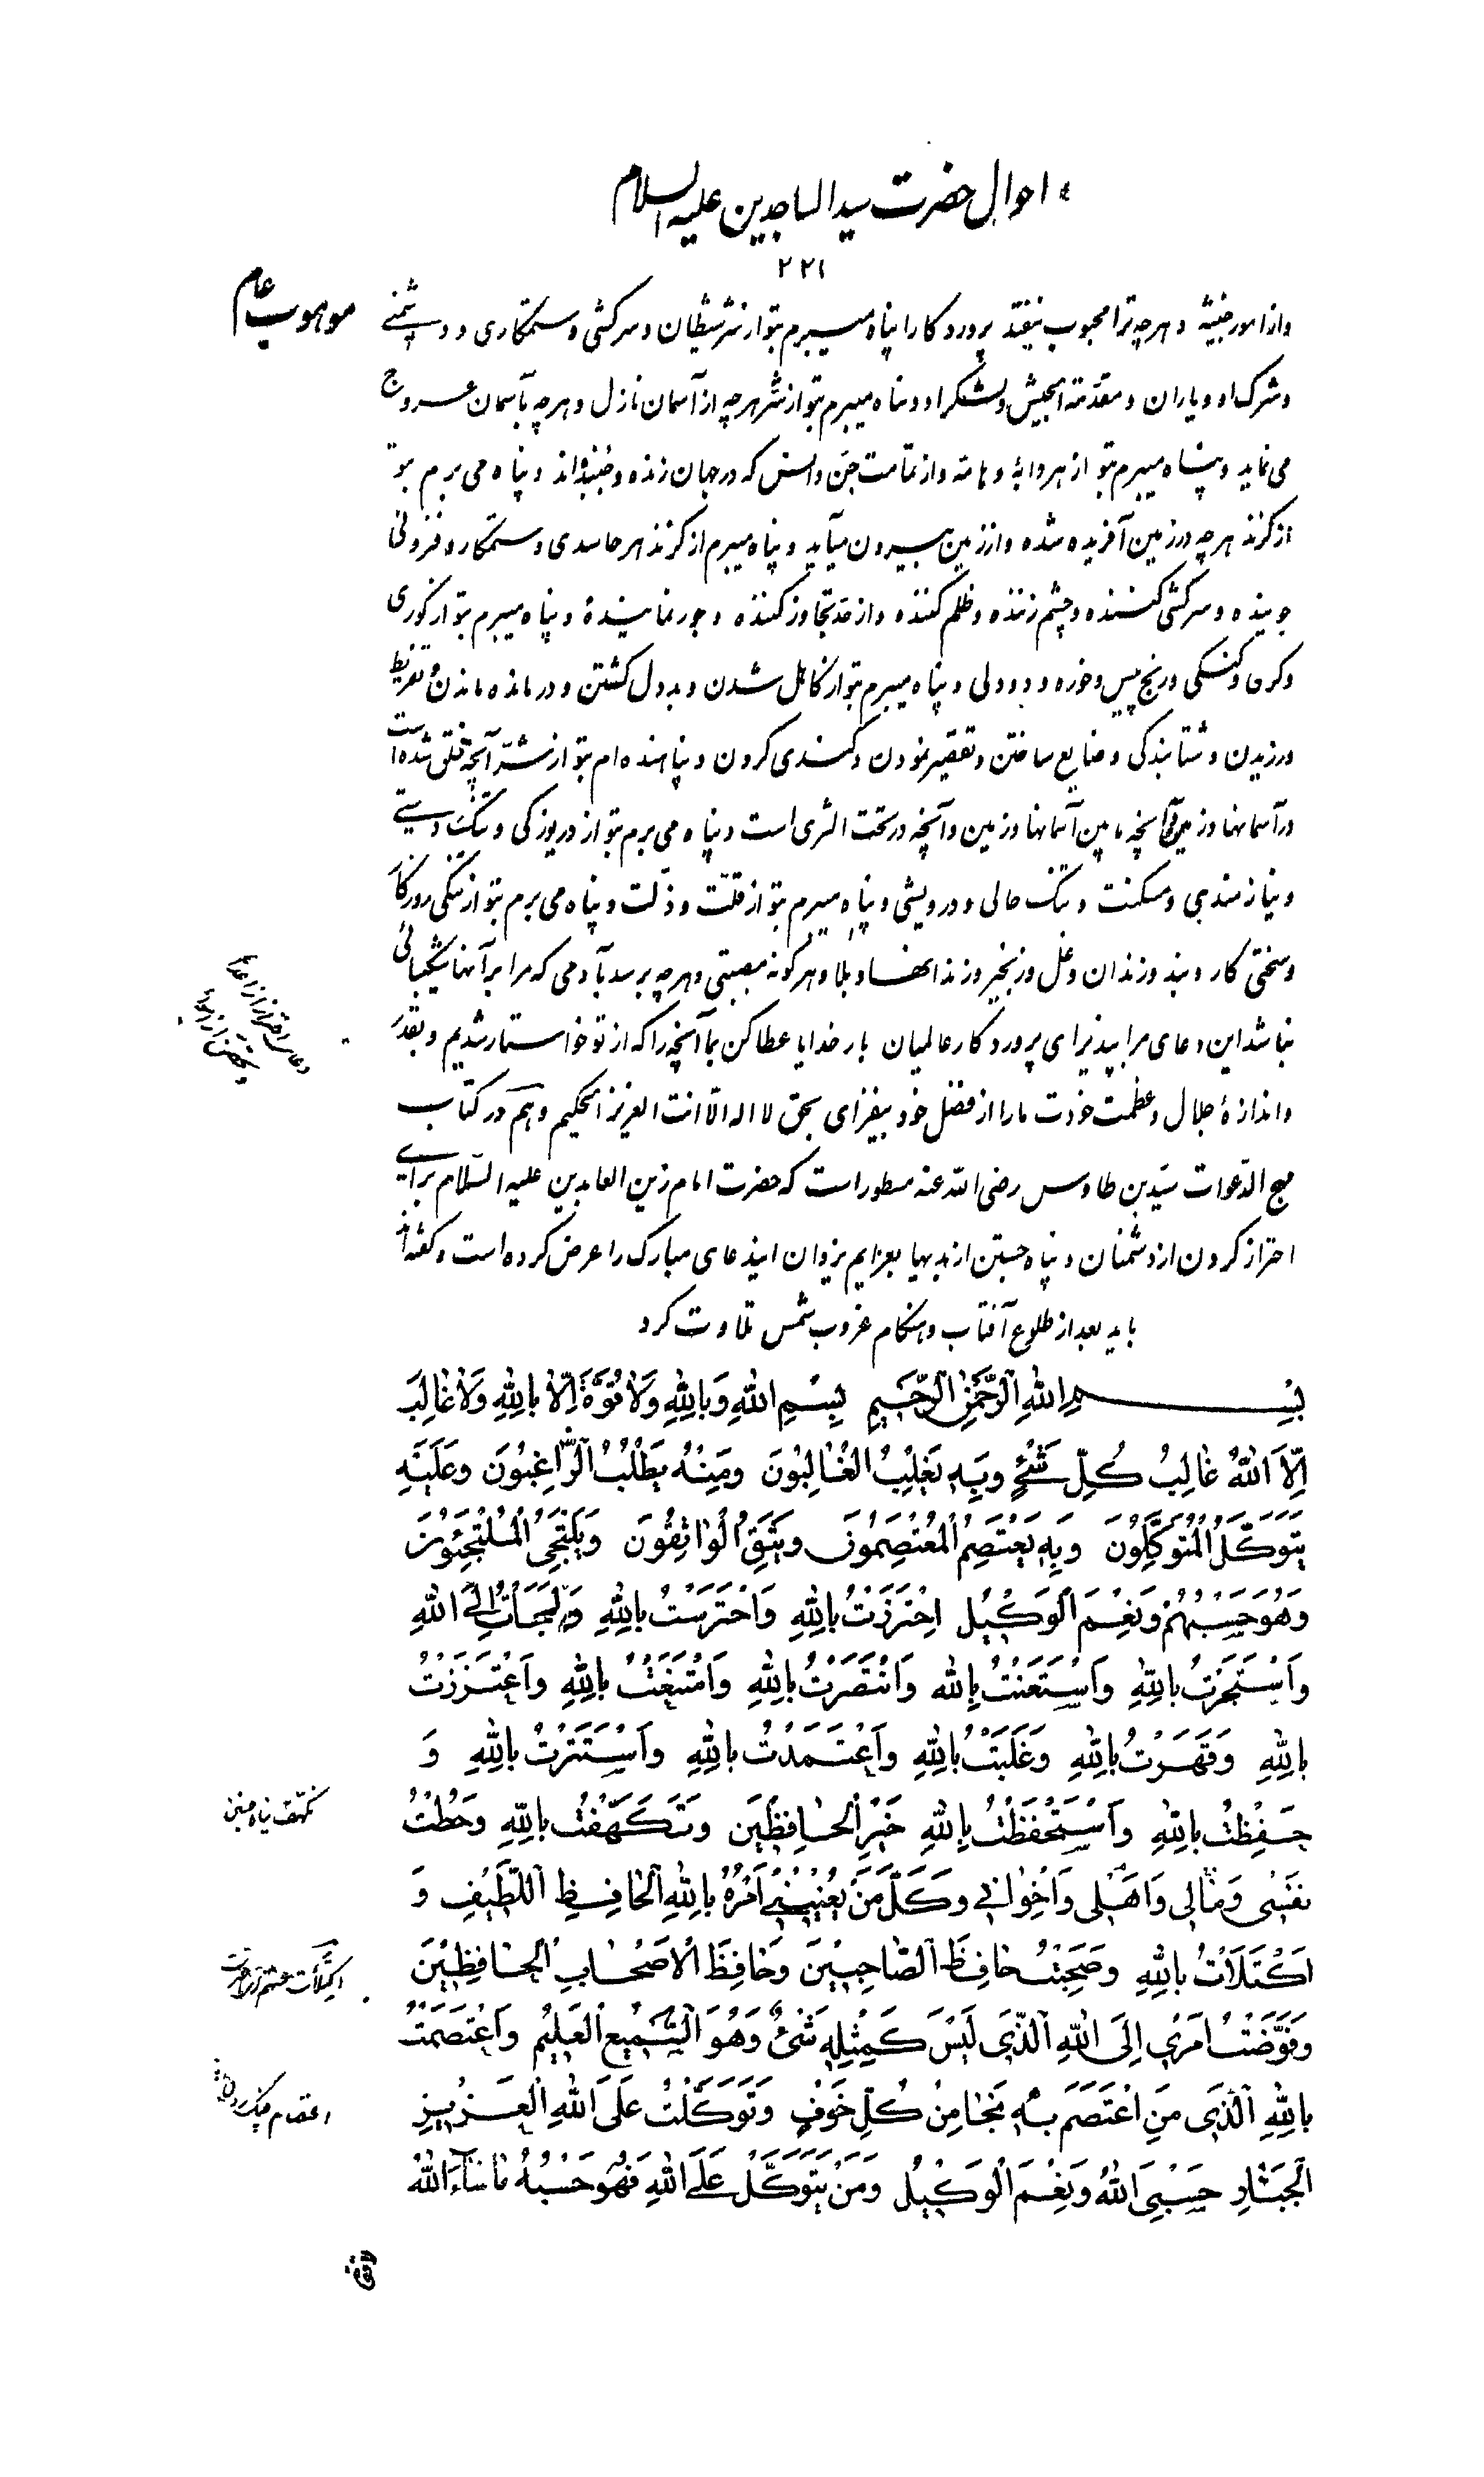 احوال حضرت سید الساجدین علیه السلام
۲۲۱
موهوب عام
و از امور خبیثه و هرچه ترا محبوب نیفتد پروردگارا پناه میبرم بتو از شر شیطان و سرکشی و ستمکاری و دشمنی
و شرک او و یاران و مقدمة الجیش و لشکر او و پناه میبرم بتو از شر هرچه از آسمان نازل و هرچه بآسمان عروج
می نماید و پناه میبرم بتو از هر دابهٔ و هامه و از تمامت جن و انس که در جهان زنده و جنبنده اند و پناه می برم بتو
از گزند هرچه در زمین آفریده شده و از زمین بیرون میآید و پناه میبرم از گزند هر حاسدی و ستمکار و فزونی
جوینده و سرکشی کننده و چشم زننده و ظلم کننده و از حد تجاوز کننده و جور نمایندهٔ و پناه میبرم بتو از کوری
و کری و گنگی و رنج پیس و خوره و دودلی و پناه میبرم بتو از کاهل شدن و بددل گشتن و درمانده ماندن و تفریط
ورزیدن و شتابندگی و ضایع ساختن و تقصیر نمودن و کندی کردن و پناهنده ام بتو از شر آنچه خلق شده است
در آسمانها و زمین و آنچه مابین آسمانها و زمین و آنچه در تحت الثری است و پناه می برم بتو از دریوزگی و تنگ دستی
و نیازمندی و مسکنت و تنگ حالی و درویشی و پناه میبرم بتو از قلت و ذلت و پناه می برم بتو از تنگی روزگار
و سختی کار و بند و زندان و غل و زنجیر و زندانها و بلا و هرگونه مصیبتی و هرچه برسد بآدمی که مرا بر آنها شکیبائی
نباشد این دعای مرا بپذیر ای پروردگار عالمیان بار خدایا عطا کن بما آنچه را که از تو خواستار شدیم و بقدر
و اندازهٔ جلال و عظمت خودت ما را از فضل خود بیفزای بحق لا اله الا انت العزیز الحکیم و هم در کتاب
مهج الدعوات سید بن طاوس رضی الله عنه مسطور است که حضرت امام زین العابدین علیه السلام برای
احتراز کردن از دشمنان و پناه جستن از بدیها بعزایم یزدان ایندعای مبارک را عرض کرده است و گفته اند
باید بعد از طلوع آفتاب و هنگام غروب شمس تلاوت کرد
بِسْمِ اللهِ الرَّحْمٰنِ الرَّحِیمِ بِسْمِ اللهِ وَبِاللهِ وَلَا قُوَّةَ اِلَّا بِاللهِ وَلَا غَالِبَ
اِلَّا اللهُ غَالِبُ كُلِّ شَیْءٍ وَبِهِ یَغْلِبُ الْغَالِبُونَ وَمِنْهُ یَطْلُبُ الرَّاغِبُونَ وَعَلَیْهِ
یَتَوَكَّلُ الْمُتَوَكِّلُونَ وَبِهِ یَعْتَصِمُ الْمُعْتَصِمُونَ وَیَثِقُ الْوَاثِقُونَ وَیَلْتَجِیُ الْمُلْتَجِئُونَ
وَهُوَ حَسْبُهُمْ وَنِعْمَ الْوَكِیلُ اِحْتَرَزْتُ بِاللهِ وَاحْتَرَسْتُ بِاللهِ وَلَجَاْتُ اِلَی اللهِ
وَاسْتَجَرْتُ بِاللهِ وَاسْتَعَنْتُ بِاللهِ وَانْتَصَرْتُ بِاللهِ وَامْتَنَعْتُ بِاللهِ وَاعْتَزَزْتُ
بِاللهِ وَقَهَرْتُ بِاللهِ وَغَلَبْتُ بِاللهِ وَاعْتَمَدْتُ بِاللهِ وَاسْتَتَرْتُ بِاللهِ وَ
حَفِظْتُ بِاللهِ وَاسْتَحْفَظْتُ بِاللهِ خَیْرِ الْحَافِظِینَ وَتَكَهَّفْتُ بِاللهِ وَحُطْتُ
نَفْسِی وَمَالِی وَاَهْلِی وَاِخْوَانِی وَكُلَّ مَنْ یَعْنِینِی اَمْرُهُ بِاللهِ الْحَافِظِ اللَّطِیفِ وَ
اكْتَلَاْتُ بِاللهِ وَصَحِبْتُ حَافِظَ الصَّاحِبِینَ وَحَافِظَ الْاَصْحَابِ الْحَافِظِینَ
وَفَوَّضْتُ اَمْرِی اِلَی اللهِ الَّذِی لَیْسَ كَمِثْلِهِ شَیْءٌ وَهُوَ السَّمِیعُ الْعَلِیمُ وَاعْتَصَمْتُ
بِاللهِ الَّذِی مَنِ اعْتَصَمَ بِهِ نَجَا مِنْ كُلِّ خَوْفٍ وَتَوَكَّلْتُ عَلَی اللهِ الْعَزِیزِ
الْجَبَّارِ حَسْبِیَ اللهُ وَنِعْمَ الْوَكِیلُ وَمَنْ یَتَوَكَّلْ عَلَی اللهِ فَهُوَ حَسْبُهُ مَا شَاءَ اللهُ
دعای احتراز از اعدا
تکهف پناه جستن